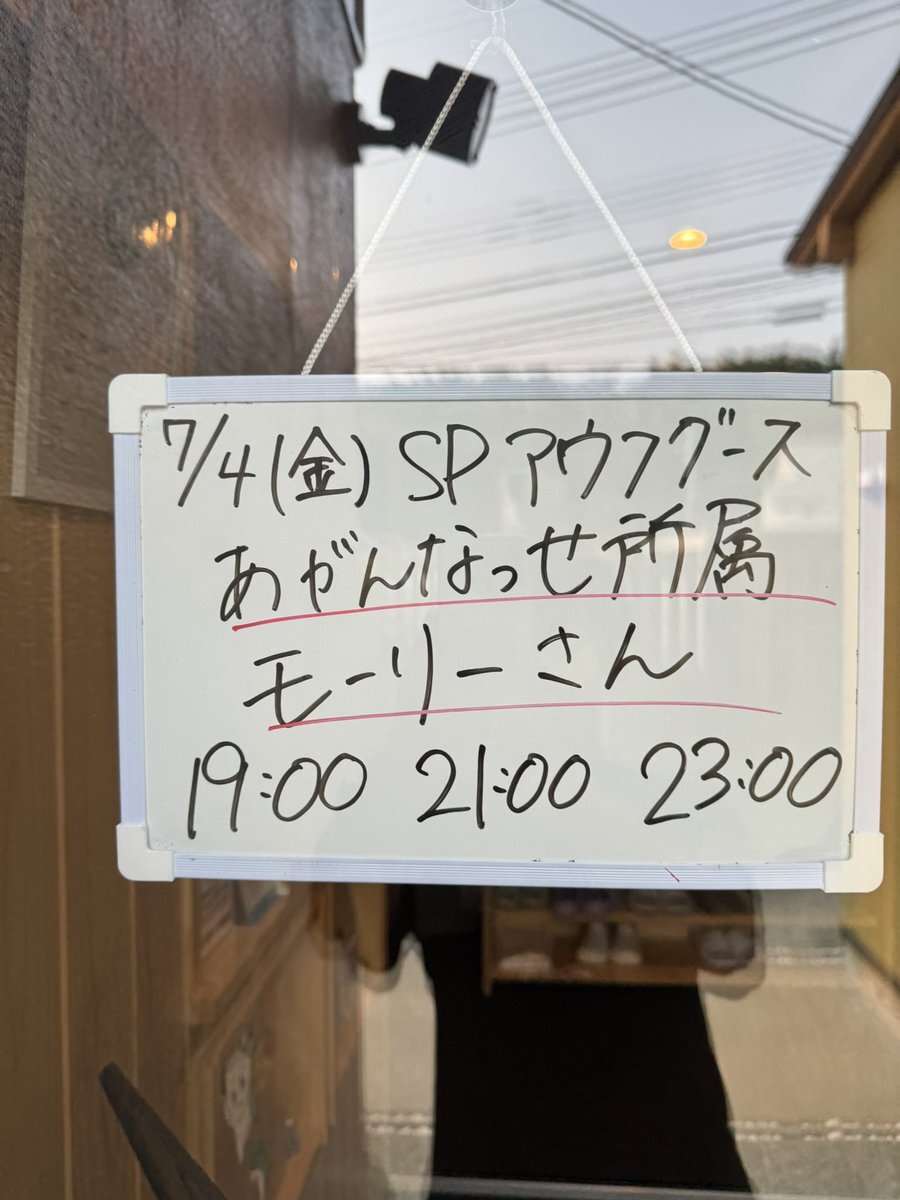 7/4(金) SP アウフグース
あがんなっせ所属
モーリーさん
19:00 21:00 23:00